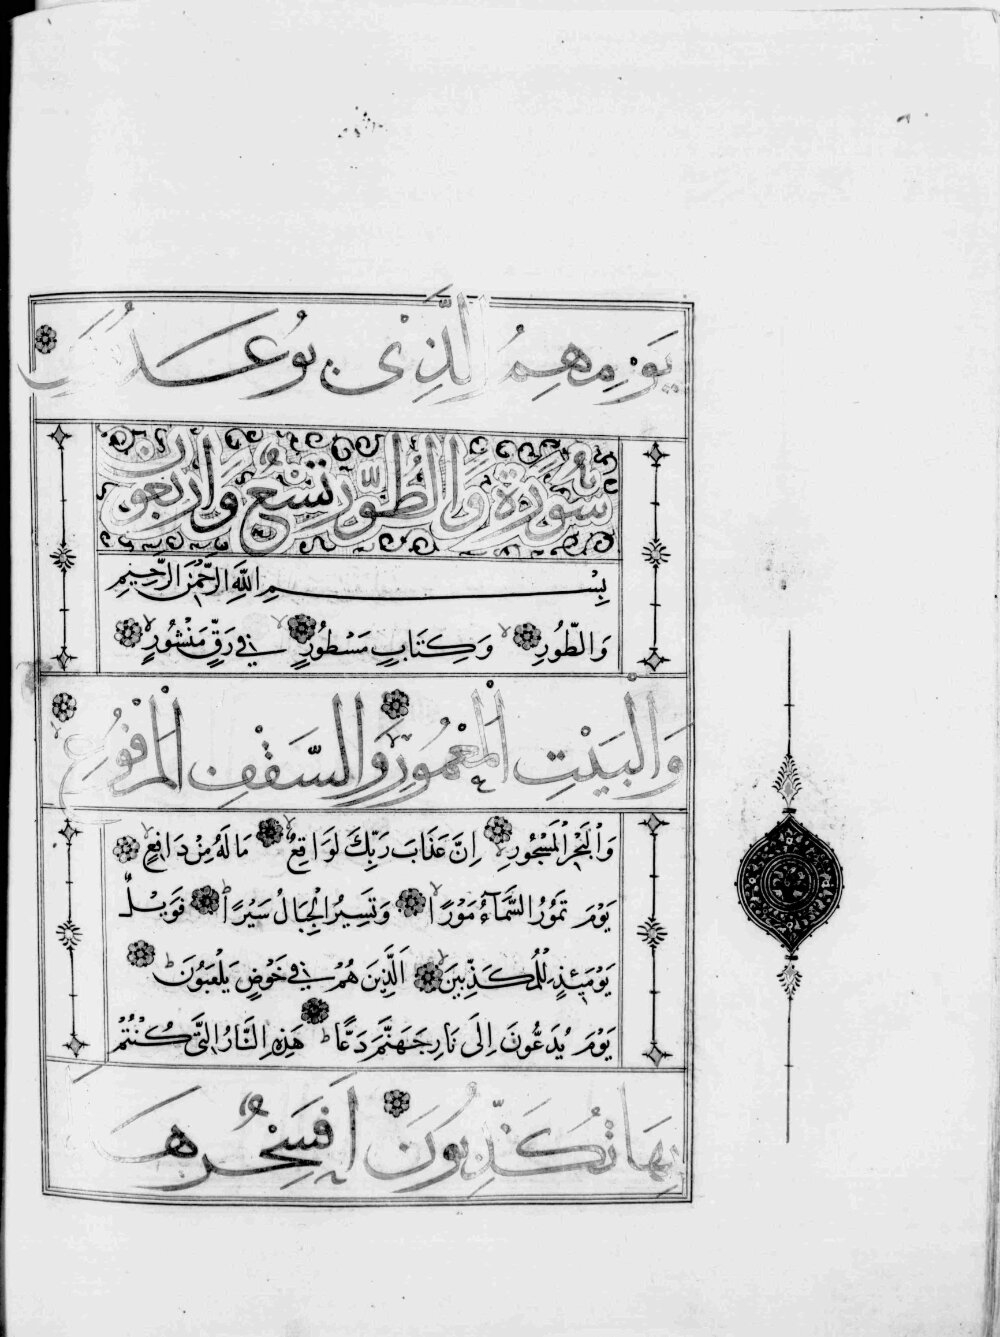 يَوْمِهِمُ الَّذِي يُوعَدُونَ
سُورَةُ وَالطُّورِ تِسْعُ وَأَرْبَعُونَ آية
بِسْمِ اللَّهِ الرَّحْمَٰنِ الرَّحِيمِ
وَالطُّورِ وَكِتَابٍ مَسْطُورٍ فِي رَقٍّ مَنْشُورٍ
وَالْبَيْتِ الْمَعْمُورِ وَالسَّقْفِ الْمَرْفُوعِ
وَالْبَحْرِ الْمَسْجُورِ إِنَّ عَذَابَ رَبِّكَ لَوَاقِعٌ مَا لَهُ مِنْ دَافِعٍ
يَوْمَ تَمُورُ السَّمَاءُ مَوْرًا وَتَسِيرُ الْجِبَالُ سَيْرًا فَوَيْلٌ
يَوْمَئِذٍ لِلْمُكَذِّبِينَ الَّذِينَ هُمْ فِي خَوْضٍ يَلْعَبُونَ
يَوْمَ يُدَعُّونَ إِلَى نَارِ جَهَنَّمَ دَعًّا هَذِهِ النَّارُ الَّتِي كُنْتُمْ
بِهَا تُكَذِّبُونَ أَفَسِحْرٌ هَذَا